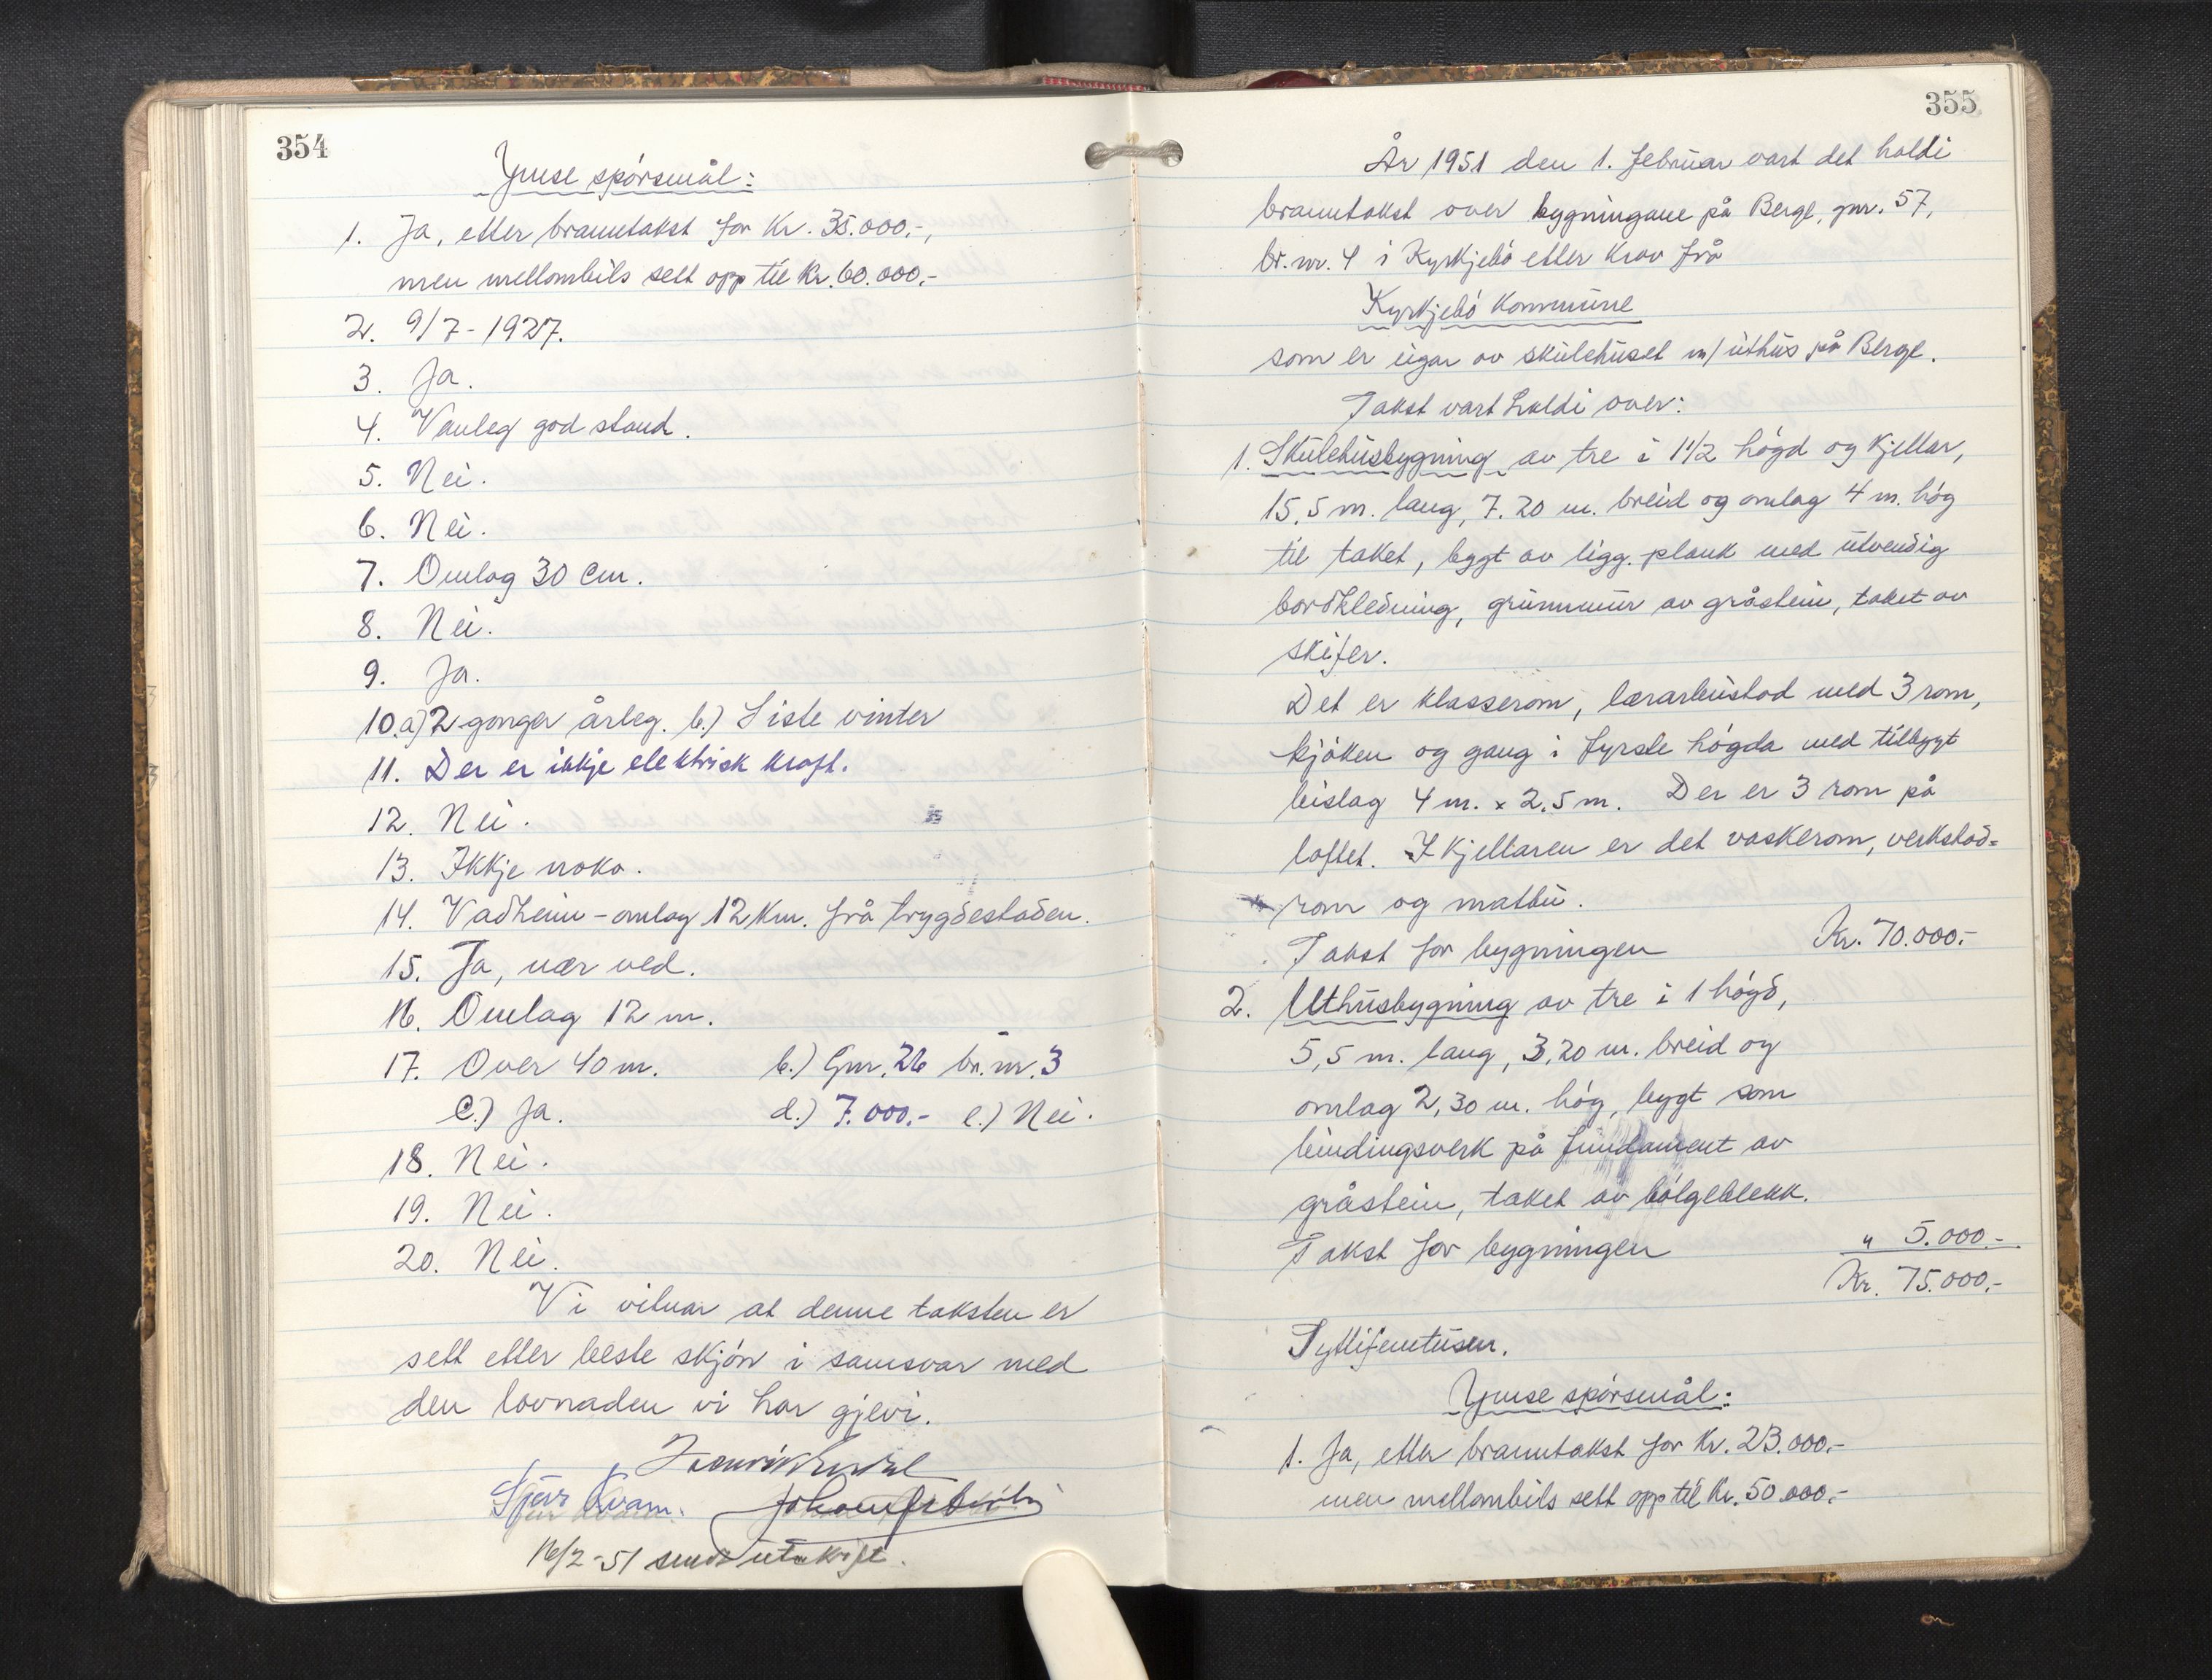 354
Ymse spørsmål:
1. Ja, etter branntakst for Kr. 35.000.-,
men mellombils sett opp til Kr. 60.000.-
2. 9/7-1927.
3. Ja.
4. Vanleg god stand.
5. Nei.
6. Nei.
7. Omlag 30 cm.
8. Nei.
9. Ja.
10.a) 2 gonger årleg. b.) Siste vinter
11. Der er ikkje elektrisk kraft.
12. Nei.
13. Ikkje noko.
14. Vadheim - omlag 12 km. frå trygdestaden.
15. Ja, nær ved.
16. Omlag 12 m.
17. Over 40 m. b.) Gnr. 26 br.nr. 3
c.) Ja. d.) 7.000.- e.) Nei.
18. Nei.
19. Nei.
20. Nei.
Vi vitnar at denne taksten er
sett etter beste skjøn i samsvar med
den lovnaden vi har gjevi.
Kvam.
16/2-51 sendt utskrift.
355
År 1951 den 1. februar vart det haldi
branntakst over bygningane på Berge, gnr. 57,
br.nr. 4 i Kyrkjebø etter krav frå
Kyrkjebø kommune
som er eigar av skulehuset m/ uthus på Berge.
Takst vart haldi over:
1. Skulehusbygning av tre i 1 1/2 høgd og kjellar,
15,5 m. lang, 7.20 m. breid og omlag 4 m. høg
til taket, bygt av ligg. plank med utvendig
bordkledning, grunnmur av gråstein, taket av
skifer.
Det er klasserom, lærarbustad med 3 rom,
kjøken og gang i fyrste høgda med tilbygt
bislag 4 m. x 2,5 m. Der er 3 rom på
loftet. I kjellaren er det vaskerom, verkstad=
rom og matbu.
Takst for bygningen Kr. 70.000.-
2. Uthusbygning av tre i 1 høgd,
5,5 m. lang, 3,20 m. breid og
omlag 2,30 m. høg, bygt som
bindingsverk på fundament av
gråstein, taket av bølgeblekk.
Takst for bygningen " 5.000.-
Kr. 75.000.-
Syttifemtusen.
Ymse spørsmål:
1. Ja, etter branntakst for Kr. 23.000.-
men mellombils sett opp til Kr. 50.000.-